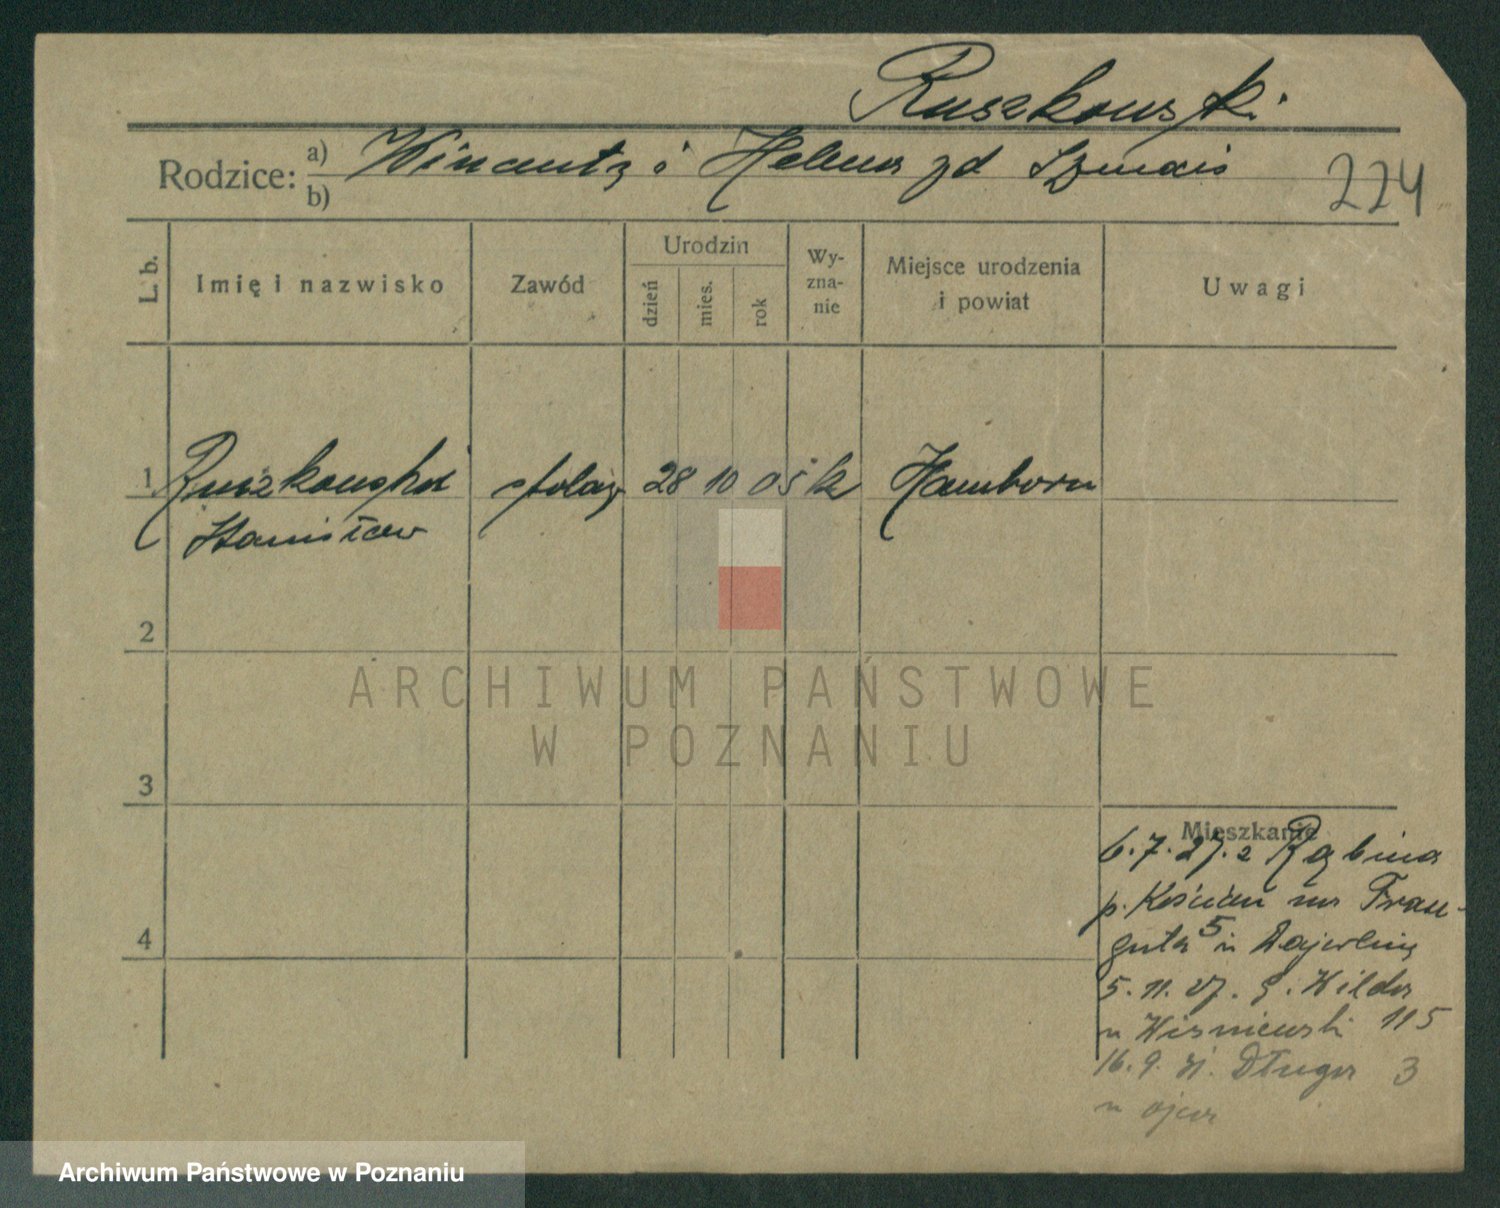 Ruszkowski
Rodzice: a) Wincenty i Helena zd Szmais
b)
224
L. b.
Imię i nazwisko
Zawód
Urodzin
dzień
mies.
rok
Wy-
zna-
nie
Miejsce urodzenia
i powiat
Uwagi
1 Ruszkowski stolarz 28 10 05 k Hamborn
Stanisław
2
3
4
Mieszkanie
6.7.27. z Rąbina
p. Kościan na Trau-
gutta 5
5.11.27. g. Wilda
u Wisniewski 115
16.9.31. Długa 3
u ojca
ARCHIWUM PAŃSTWOWE
W POZNANIU
Archiwum Państwowe w Poznaniu